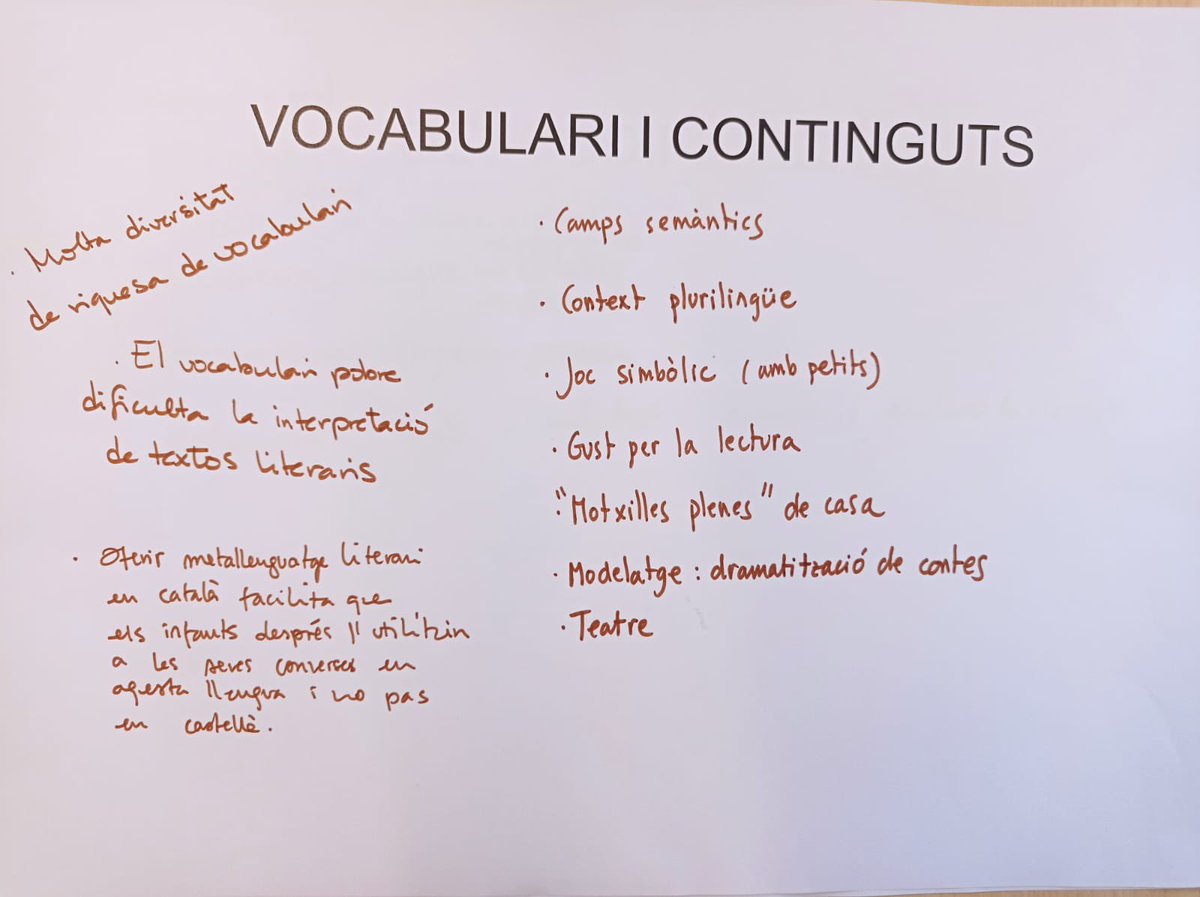 VOCABULARI I CONTINGUTS
· Molta diversitat
de riquesa de vocabulari
· El vocabulari pobre
dificulta la interpretació
de textos literaris
· Oferir metallenguatge literari
en català facilita que
els infants després l'utilitzin
a les seves converses en
aquesta llengua i no pas
en castellà.
· Camps semàntics
· Context plurilingüe
· Joc simbòlic (amb petits)
· Gust per la lectura
· "Motxilles plenes" de casa
· Modelatge: dramatització de contes
· Teatre